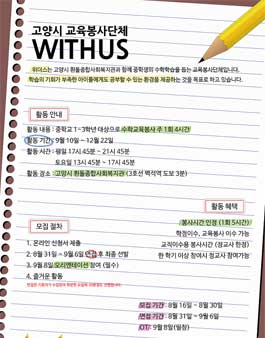 고양시 교육봉사단체
WITHUS
위더스는 고양시 흰돌종합사회복지관과 함께 중학생의 수학학습을 돕는 교육봉사단체입니다.
학습의 기회가 부족한 아이들에게도 공부할 수 있는 환경을 제공하는 것을 목표로 하고 있습니다.
활동 안내
활동 내용 : 중학교 1~3학년 대상으로 수학교육봉사 주 1회 4시간
활동 기간 : 9월 10일 ~ 12월 22일
활동 시간 : 평일 17시 45분 ~ 21시 45분
토요일 13시 45분 ~ 17시 45분
활동 장소 : 고양시 흰돌종합사회복지관 (3호선 백석역 도보 3분)
활동 혜택
봉사시간 인정 (1회 5시간)
학점이수, 교육봉사 이수 가능
교직이수용 봉사시간 (정교사 한정)
한 학기 이상 참여시 정교사 참여가능
모집 절차
1. 온라인 신청서 제출
2. 8월 31일 ~ 9월 6일 면접 후 최종 선발
3. 9월 8일 오리엔테이션 참여 (필수)
4. 즐거운 활동
모집 기간 : 8월 16일 ~ 8월 30일
면접 기간 : 8월 31일 ~ 9월 6일
OT : 9월 8일(필참)